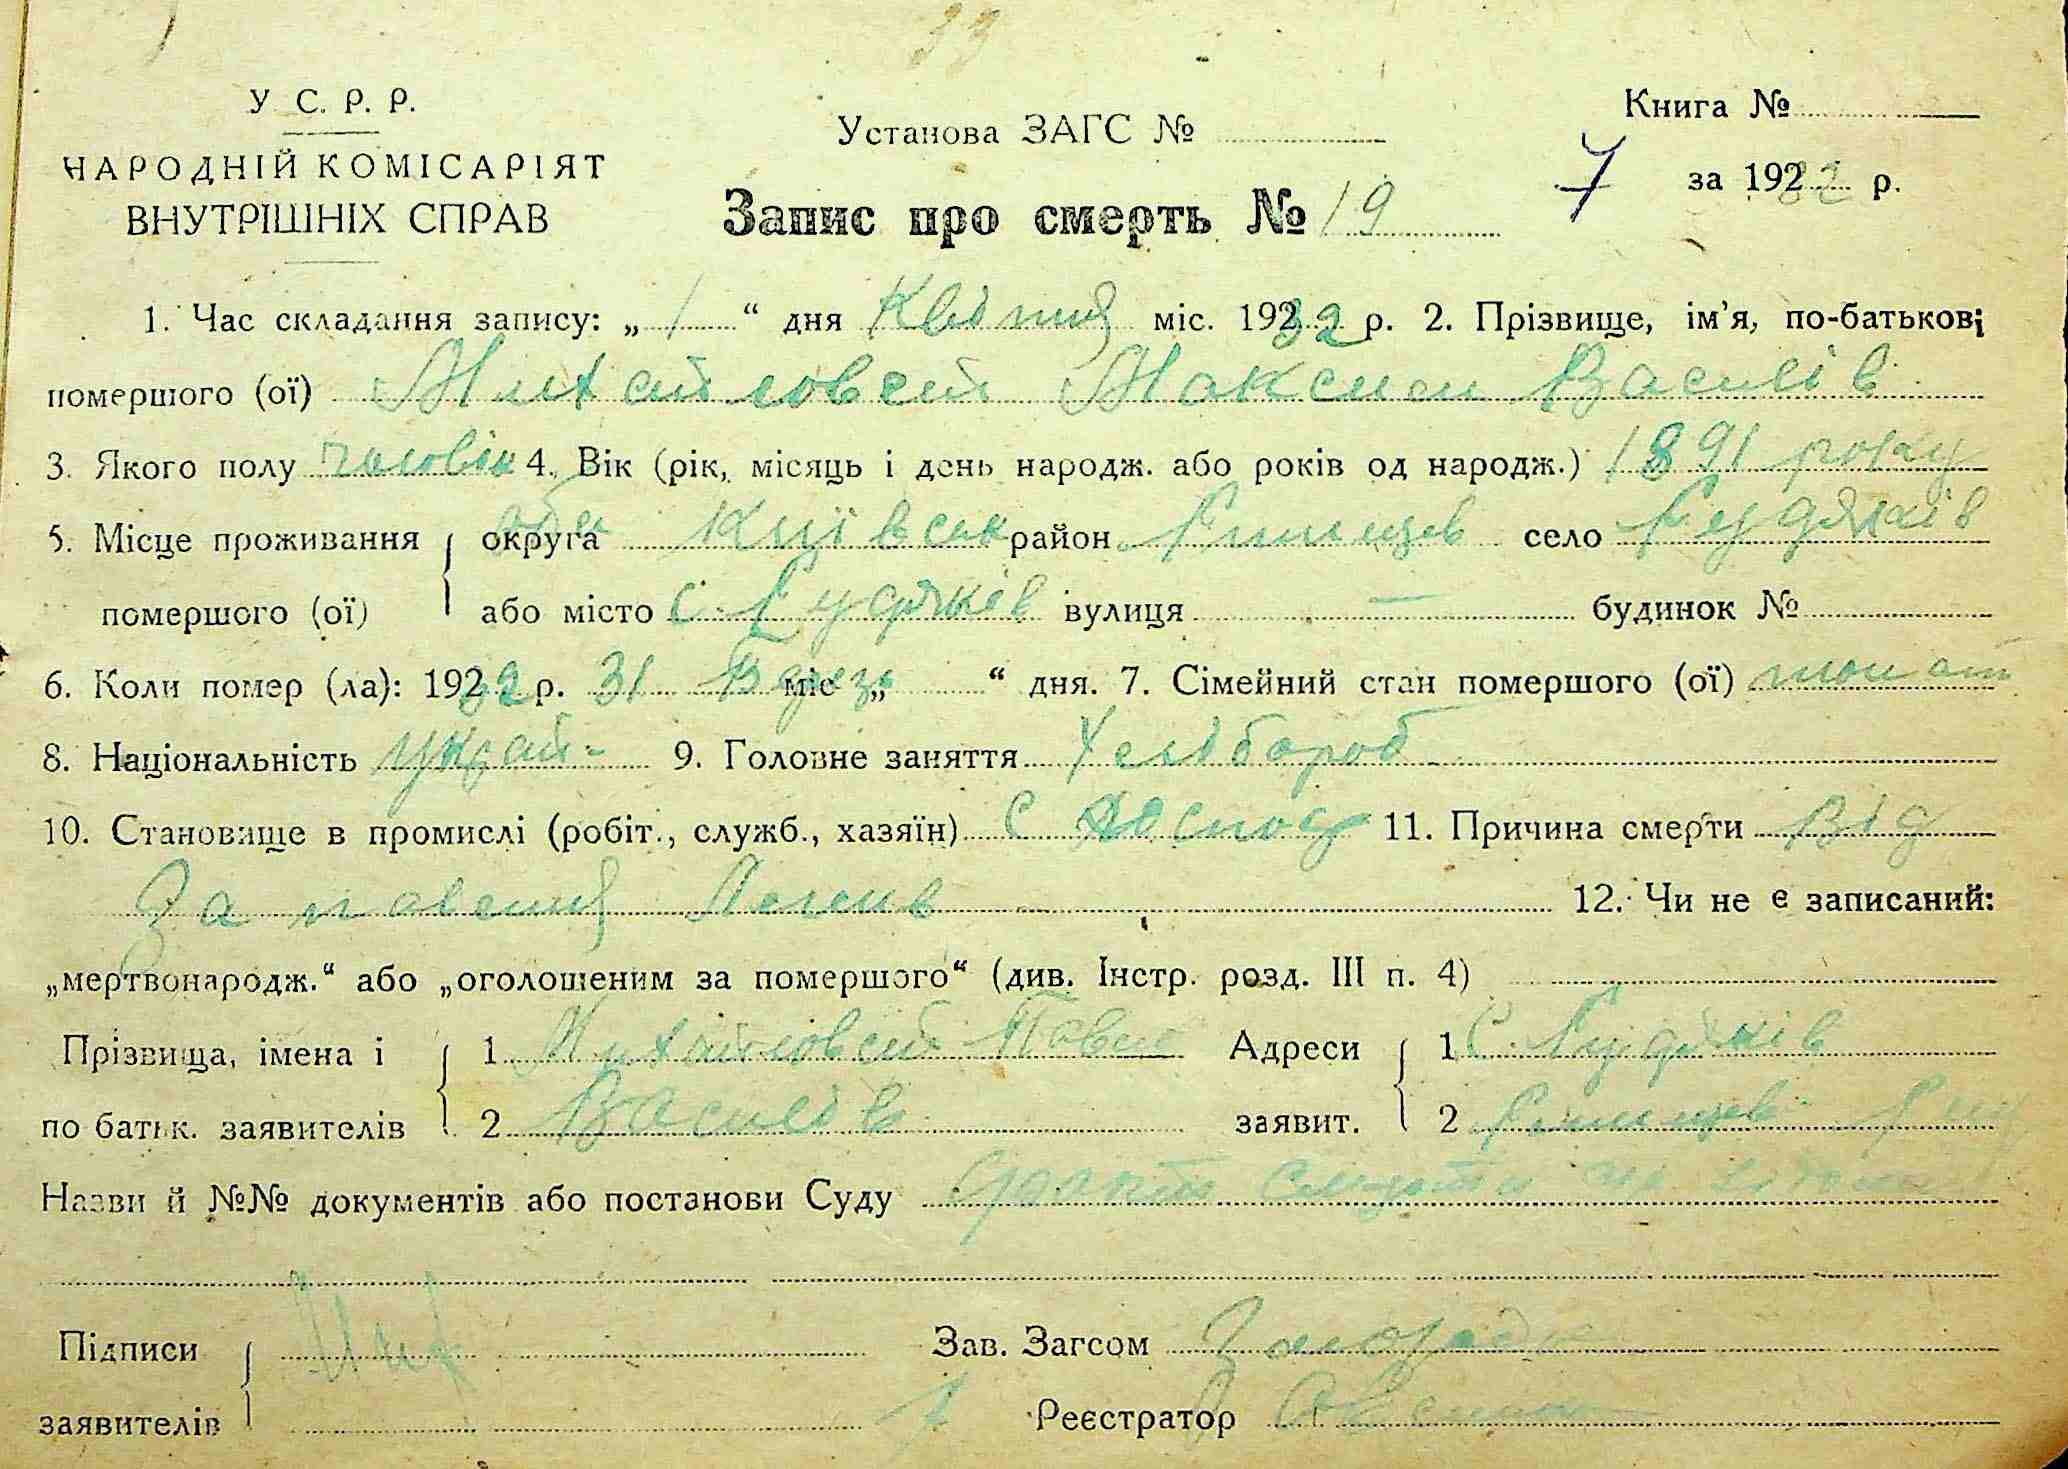 33
У С. Р. Р.
НАРОДНІЙ КОМІСАРІЯТ
ВНУТРІШНІХ СПРАВ
Установа ЗАГС №
Запис про смерть № 19
Книга №
7 за 1932 р.
1. Час складання запису: „ 1 “ дня Квітня міс. 1932 р. 2. Прізвище, ім'я, по-батькові
помершого (ої) Михайловский Максим Василів
3. Якого полу чоловік 4. Вік (рік, місяць і день народж. або років од народж.) 1891 року
5. Місце проживання округа Київськ район село
помершого (ої) або місто с. вулиця — будинок №
6. Коли помер (ла): 1932 р. 31 Берез міс „ “ дня. 7. Сімейний стан помершого (ої)
8. Національність Украй- 9. Головне заняття Хелібороб
10. Становище в промислі (робіт., служб., хазяїн) с Господ 11. Причина смерти від
Запалення Легенів 12. Чи не є записаний:
„мертвонародж.“ або „оголошеним за помершого“ (див. Інстр. розд. III п. 4)
Прізвища, імена і 1 Михайловский Павло Адреси 1 с.
по батьк. заявителів 2 Василів заявит. 2
Назви й №№ документів або постанови Суду смерти
Підписи Зав. Загсом
заявителів Реєстратор